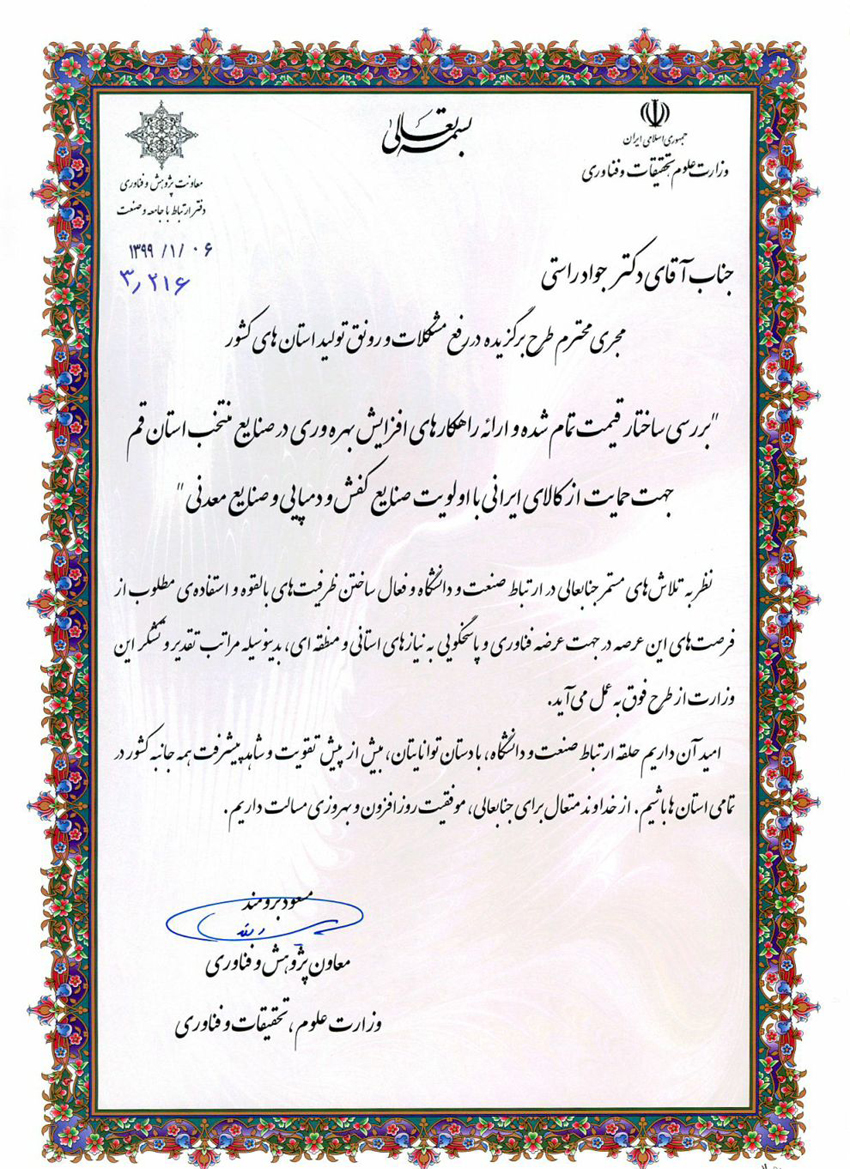 بسمه تعالی
جمهوری اسلامی ایران
وزارت علوم تحقیقات و فناوری
معاونت پژوهش و فناوری
دفتر ارتباط با جامعه و صنعت
۱۳۹۹ /۱/ ۰۶
۳٫۲۱۶
جناب آقای دکتر جواد راستی
مجری محترم طرح برگزیده در رفع مشکلات و رونق تولید استان های کشور
"بررسی ساختار قیمت تمام شده و ارائه راهکارهای افزایش بهره وری در صنایع منتخب استان قم
جهت حمایت از کالای ایرانی با اولویت صنایع کفش و دمپایی و صنایع معدنی"
نظر به تلاش‌های مستمر جنابعالی در ارتباط صنعت و دانشگاه و فعال ساختن ظرفیت‌های بالقوه و استفاده‌ی مطلوب از
فرصت‌های این عرصه در جهت عرضه فناوری و پاسخگویی به نیازهای استانی و منطقه ای، بدینوسیله مراتب تقدیر و تشکر این
وزارت از طرح فوق به عمل می‌آید.
امید آن داریم حلقه ارتباط صنعت و دانشگاه، با دستان توانایتان، بیش از پیش تقویت و شاهد پیشرفت همه جانبه کشور در
تمامی استان ها باشیم. از خداوند متعال برای جنابعالی، موفقیت روزافزون و بهروزی مسالت داریم.
مسعود برومند
معاون پژوهش و فناوری
وزارت علوم، تحقیقات و فناوری